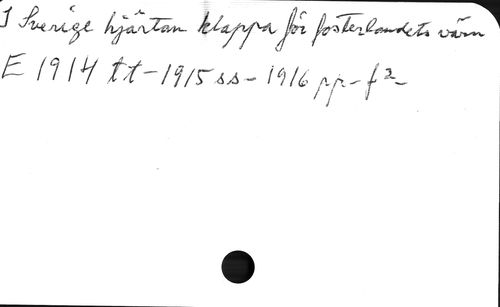 I Sverige hjärtan klappa för fosterlandets värn
E 1914 tt-1915 ss-1916 pp-f²-